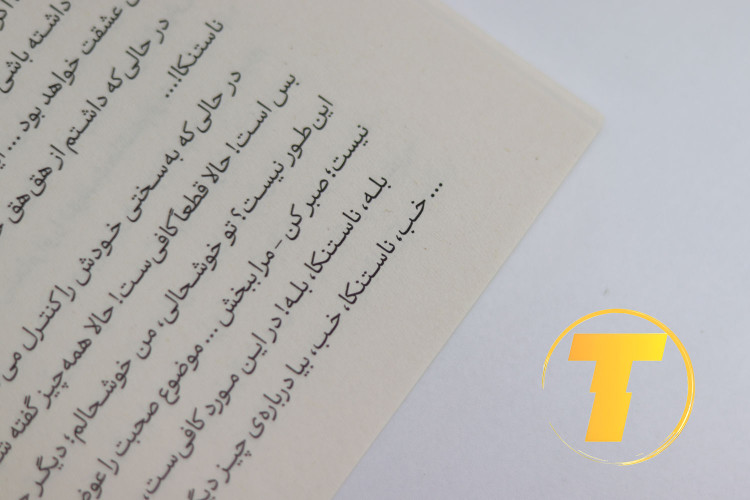 داشته باشی
عشقت خواهد بود ...
در حالی که داشتم از هق هق
ناستنکا!...
در حالی که به‌سختی خودش را کنترل می
بس است! حالا قطعاً کافی‌ست! حالا همه‌چیز گفته
این‌طور نیست؟ تو خوشحالی، من خوشحالم؛ دیگر
نیست؛ صبر کن - مرا ببخش ... موضوع صحبت را عوض
بله، ناستنکا، بله! در این مورد کافی‌ست،
... خب، ناستنکا، خب، بیا درباره‌ی چیز
T